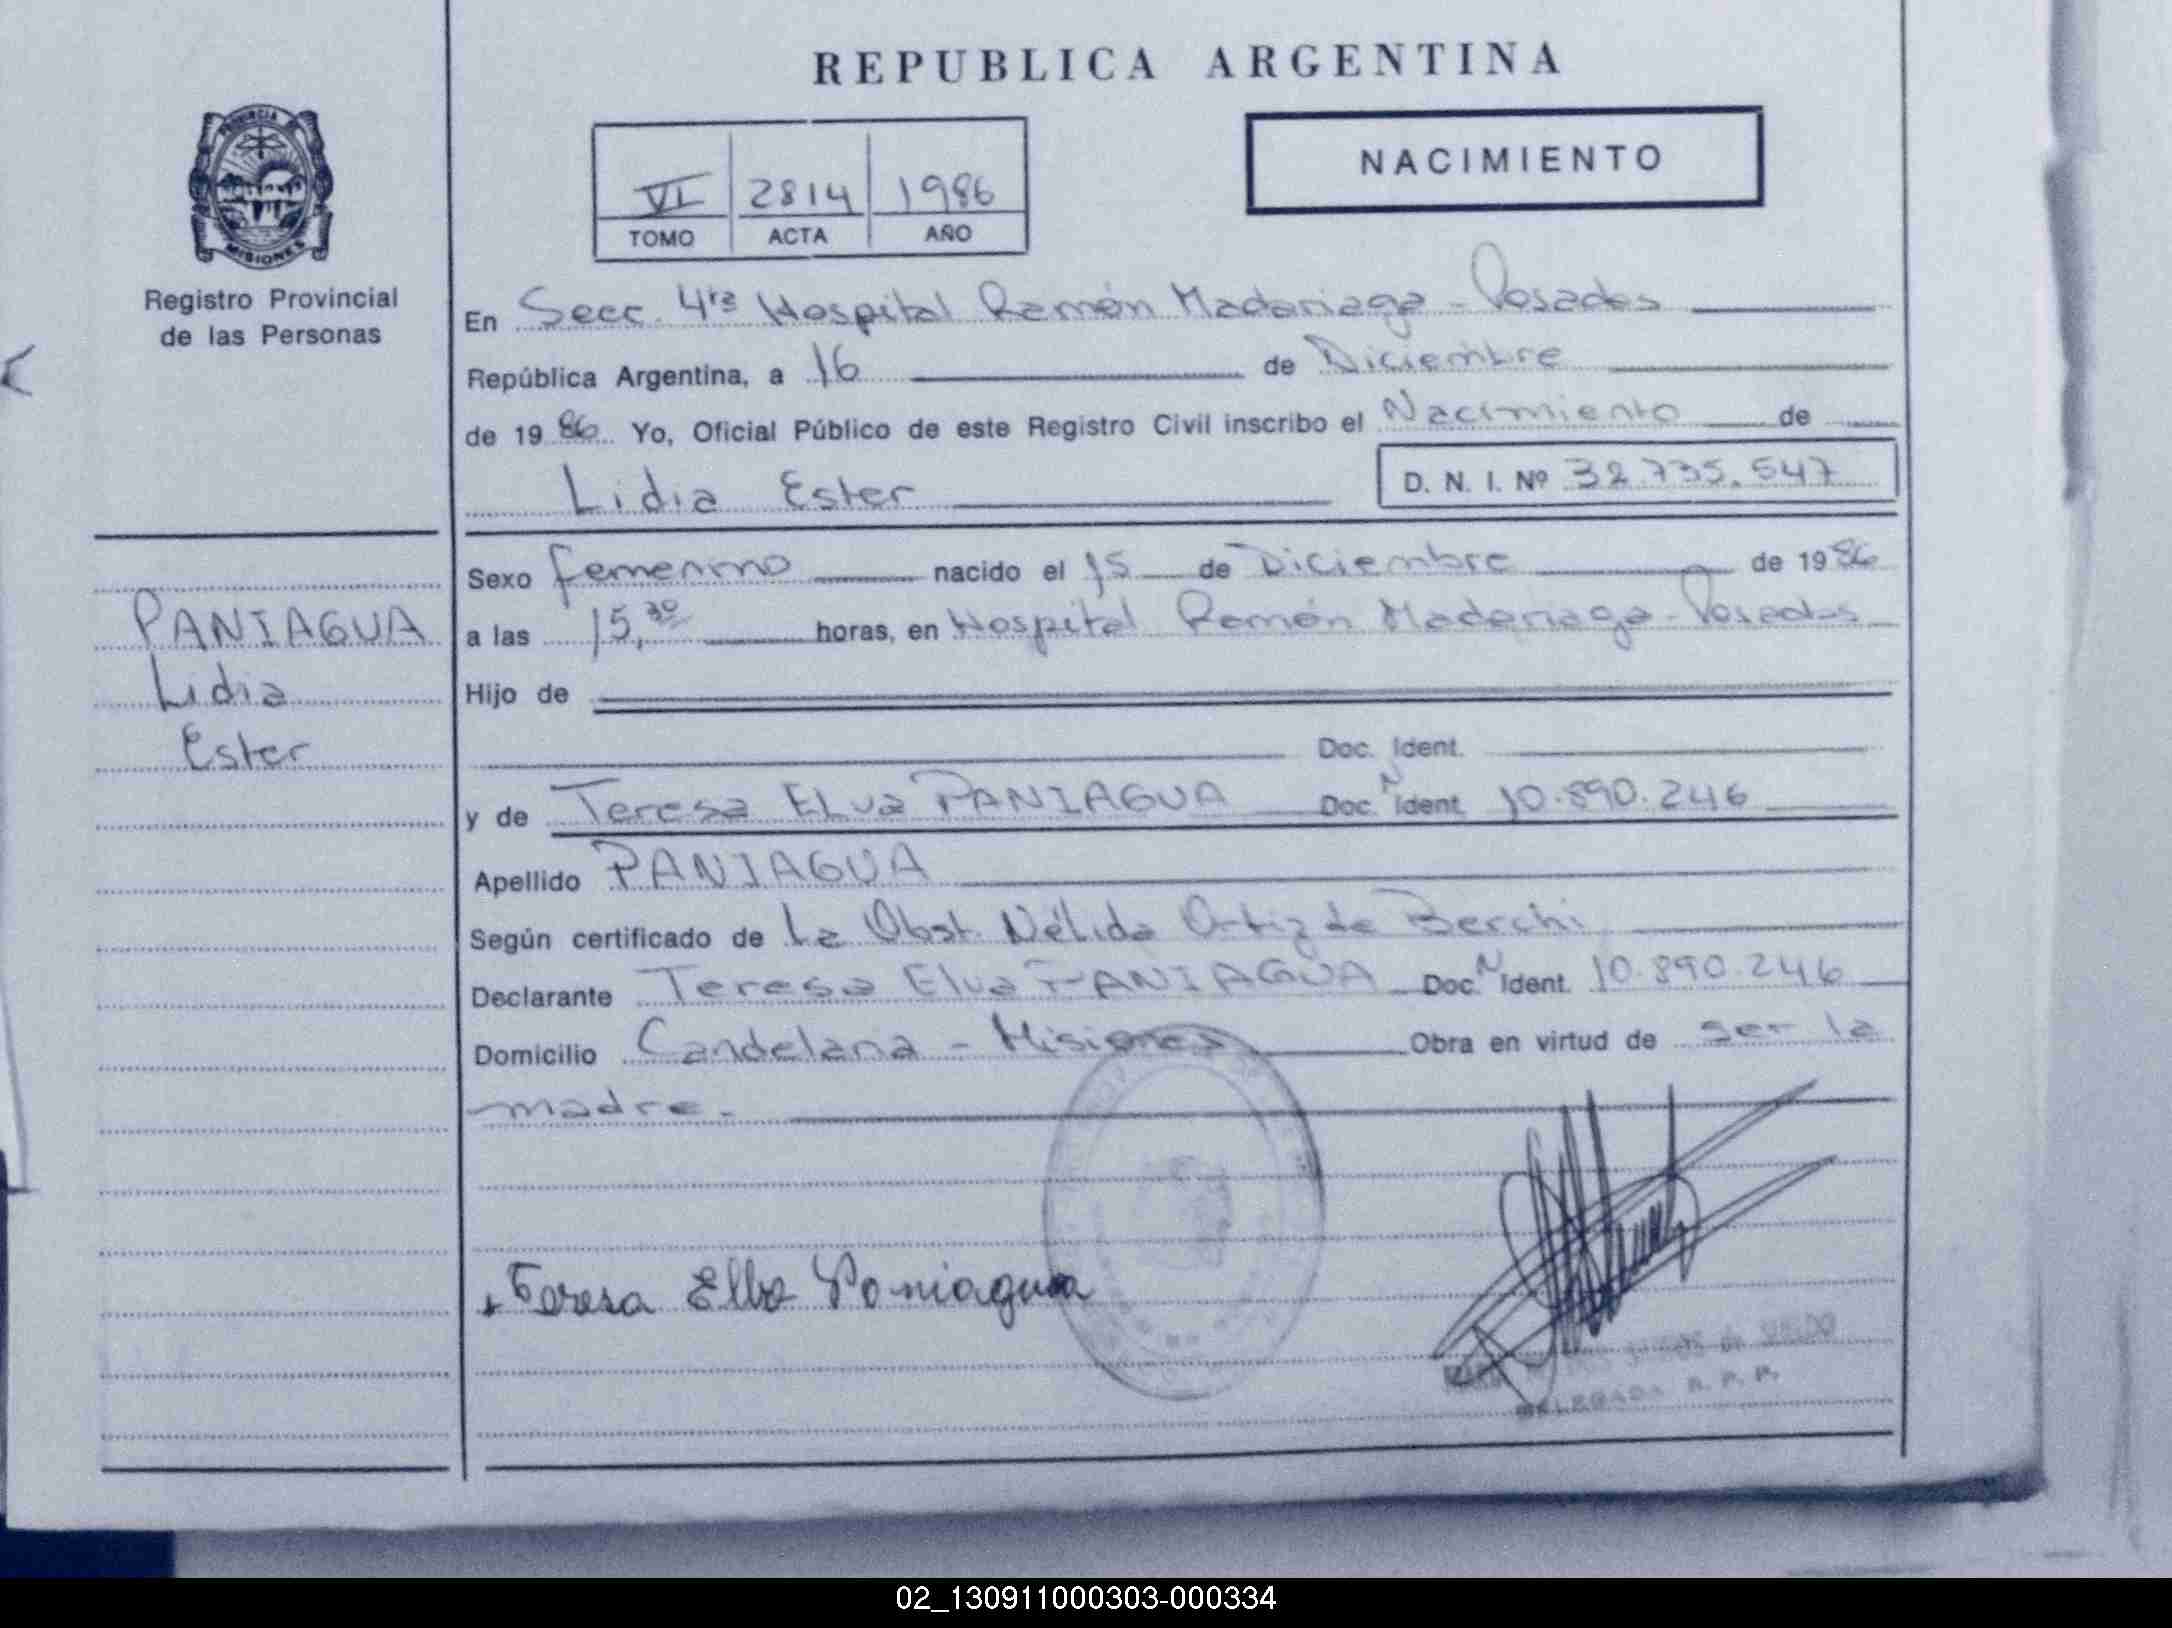 REPUBLICA ARGENTINA
PROVINCIA DE
MISIONES
Registro Provincial
de las Personas
VI 2814 1986
TOMO ACTA AÑO
NACIMIENTO
En Secc. 4ta Hospital Ramón Madariaga - Posadas
República Argentina, a 16 de Diciembre
de 1986 Yo, Oficial Público de este Registro Civil inscribo el Nacimiento de
Lidia Ester D. N. I. Nº 32.735.547
PANIAGUA
Lidia
Ester
Sexo femenino nacido el 15 de Diciembre de 1986
a las 15,30 horas, en Hospital Ramón Madariaga - Posadas
Hijo de
Doc. Ident.
y de Teresa Elva PANIAGUA Doc. N Ident. 10.890.246
Apellido PANIAGUA
Según certificado de La Obst. Nélida Ortiz de Berchi
Declarante Teresa Elva PANIAGUA Doc. N Ident. 10.890.246
Domicilio Candelaria - Misiones Obra en virtud de ser la
madre.
Teresa Elba Poniagua
DELEGADA R. P. P.
02_130911000303-000334